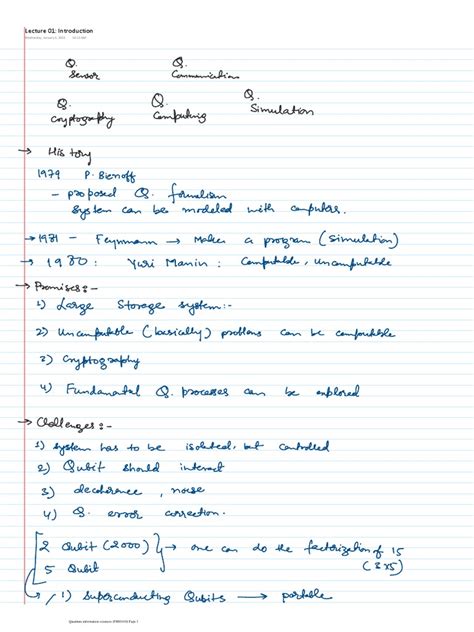 Lecture 01: Introduction
Q. Sensor Q. Communication
Q. Cryptography Q. Computing Q. Simulation
→ History
1979 P. Benioff
– proposed Q. formalism
System can be modeled with computers.
→ 1981 – Feynmann → Makes a program (simulation)
→ 1980 : Yuri Manin : Computable, uncomputable
→ Promises :-
1) Large Storage system :-
2) Uncomputable (basically) problems can be computable
3) Cryptography
4) Fundamental Q. processes can be explored
→ Challenges :-
1) system has to be isolated, but controlled
2) Qubit should interact
3) decoherence, noise
4) Q. error correction.
2 Qubit (2000) → one can do the factorization of 15
5 Qubit (3x5)
1) Superconducting Qubits → portable